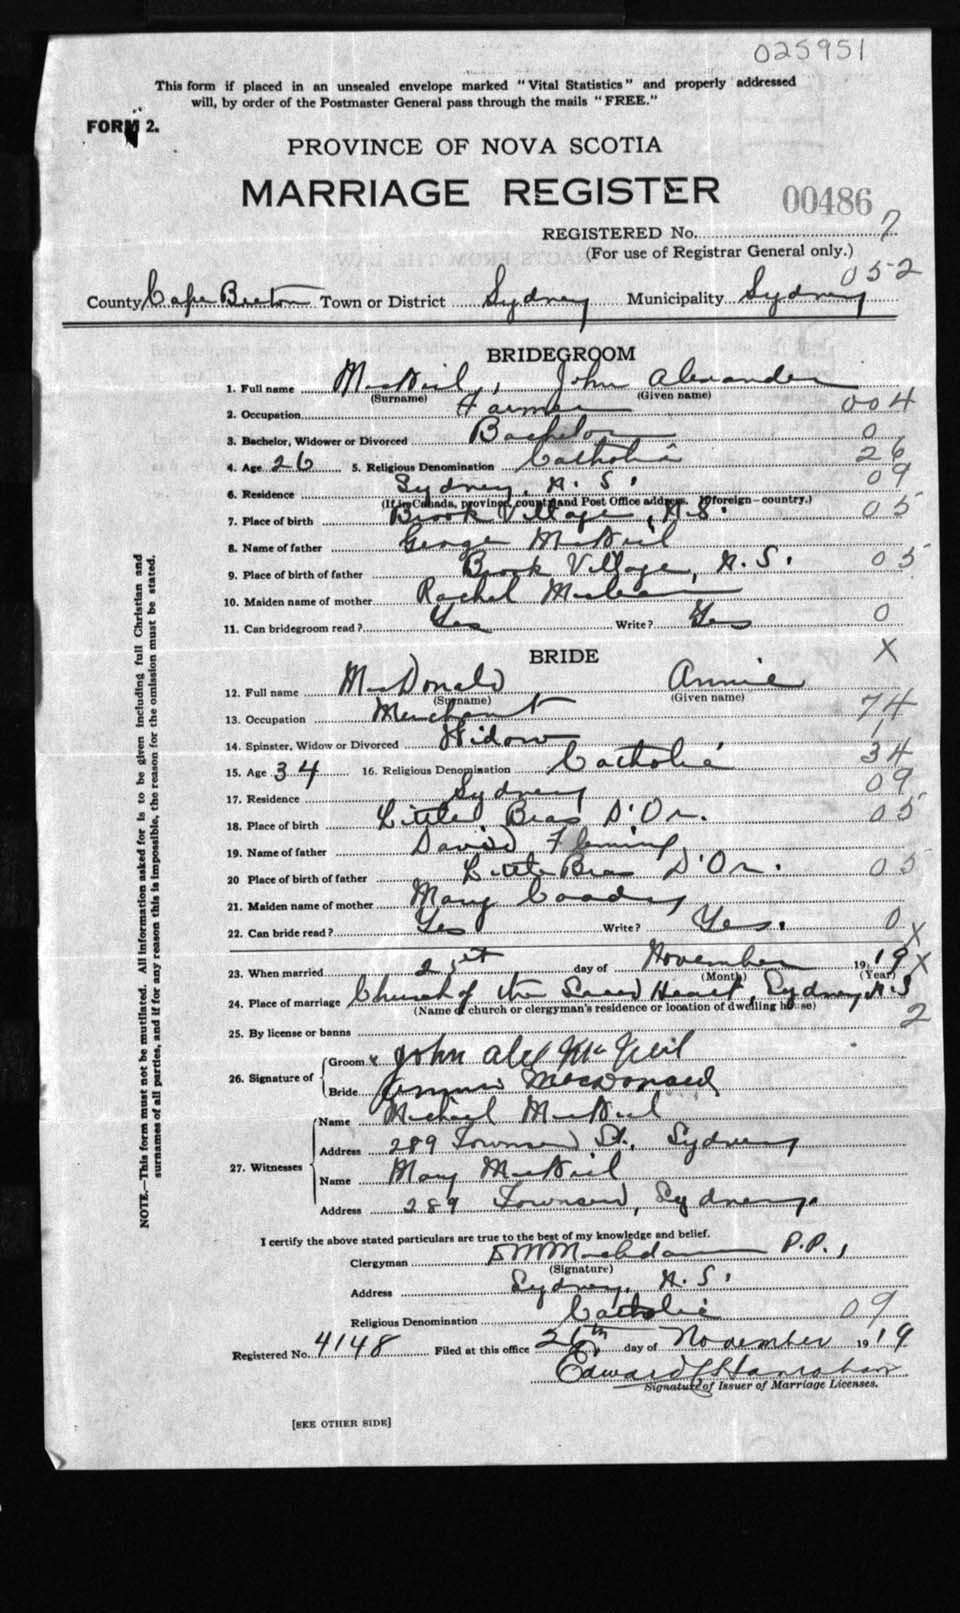 025951
This form if placed in an unsealed envelope marked "Vital Statistics" and properly addressed
will, by order of the Postmaster General pass through the mails "FREE."
FORM 2.
PROVINCE OF NOVA SCOTIA
MARRIAGE REGISTER
00486
REGISTERED No. 7
(For use of Registrar General only.)
052
County Cape Breton Town or District Sydney Municipality Sydney
BRIDEGROOM
1. Full name MacNeil, John Alexander
(Surname) (Given name)
2. Occupation Farmer 004
3. Bachelor, Widower or Divorced Bachelor 0
4. Age 26 5. Religious Denomination Catholic 26
6. Residence Sydney, N. S. 09
(If in Canada, province, county and Post Office address. If foreign—country.)
7. Place of birth Brook Village, N.S. 05
8. Name of father George MacNeil
9. Place of birth of father Brook Village, N. S. 05
10. Maiden name of mother Rachel MacLean
11. Can bridegroom read? Yes Write? Yes 0
BRIDE X
12. Full name MacDonald Annie
(Surname) (Given name)
13. Occupation Merchant 74
14. Spinster, Widow or Divorced Widow
15. Age 34 16. Religious Denomination Catholic 34
17. Residence Sydney 09
18. Place of birth Little Bras D'Or. 05
19. Name of father David Fleming
20 Place of birth of father Little Bras D'Or. 05
21. Maiden name of mother Mary Coady
22. Can bride read? Yes Write? Yes. 0 X
23. When married 21st day of November 1919 X
(Month) (Year)
24. Place of marriage Church of the Sacred Heart, Sydney N.S
(Name of church or clergyman's residence or location of dwelling house)
25. By license or banns 2
26. Signature of Groom x John Alex McNeil
Bride Annie MacDonald
27. Witnesses
Name Michael MacNeil
Address 289 Townsend St., Sydney
Name Mary MacNeil
Address 289 Townsend, Sydney.
I certify the above stated particulars are true to the best of my knowledge and belief.
Clergyman P.P.,
(Signature)
Address Sydney, N. S.
Religious Denomination Catholic 09
Registered No. 4148 Filed at this office 26th day of November 1919
Edward C Hanrahan
Signature of Issuer of Marriage Licenses.
[SEE OTHER SIDE]
NOTE.—This form must not be mutilated. All information asked for is to be given including full Christian and
surnames of all parties, and if for any reason this is impossible, the reason for the omission must be stated.